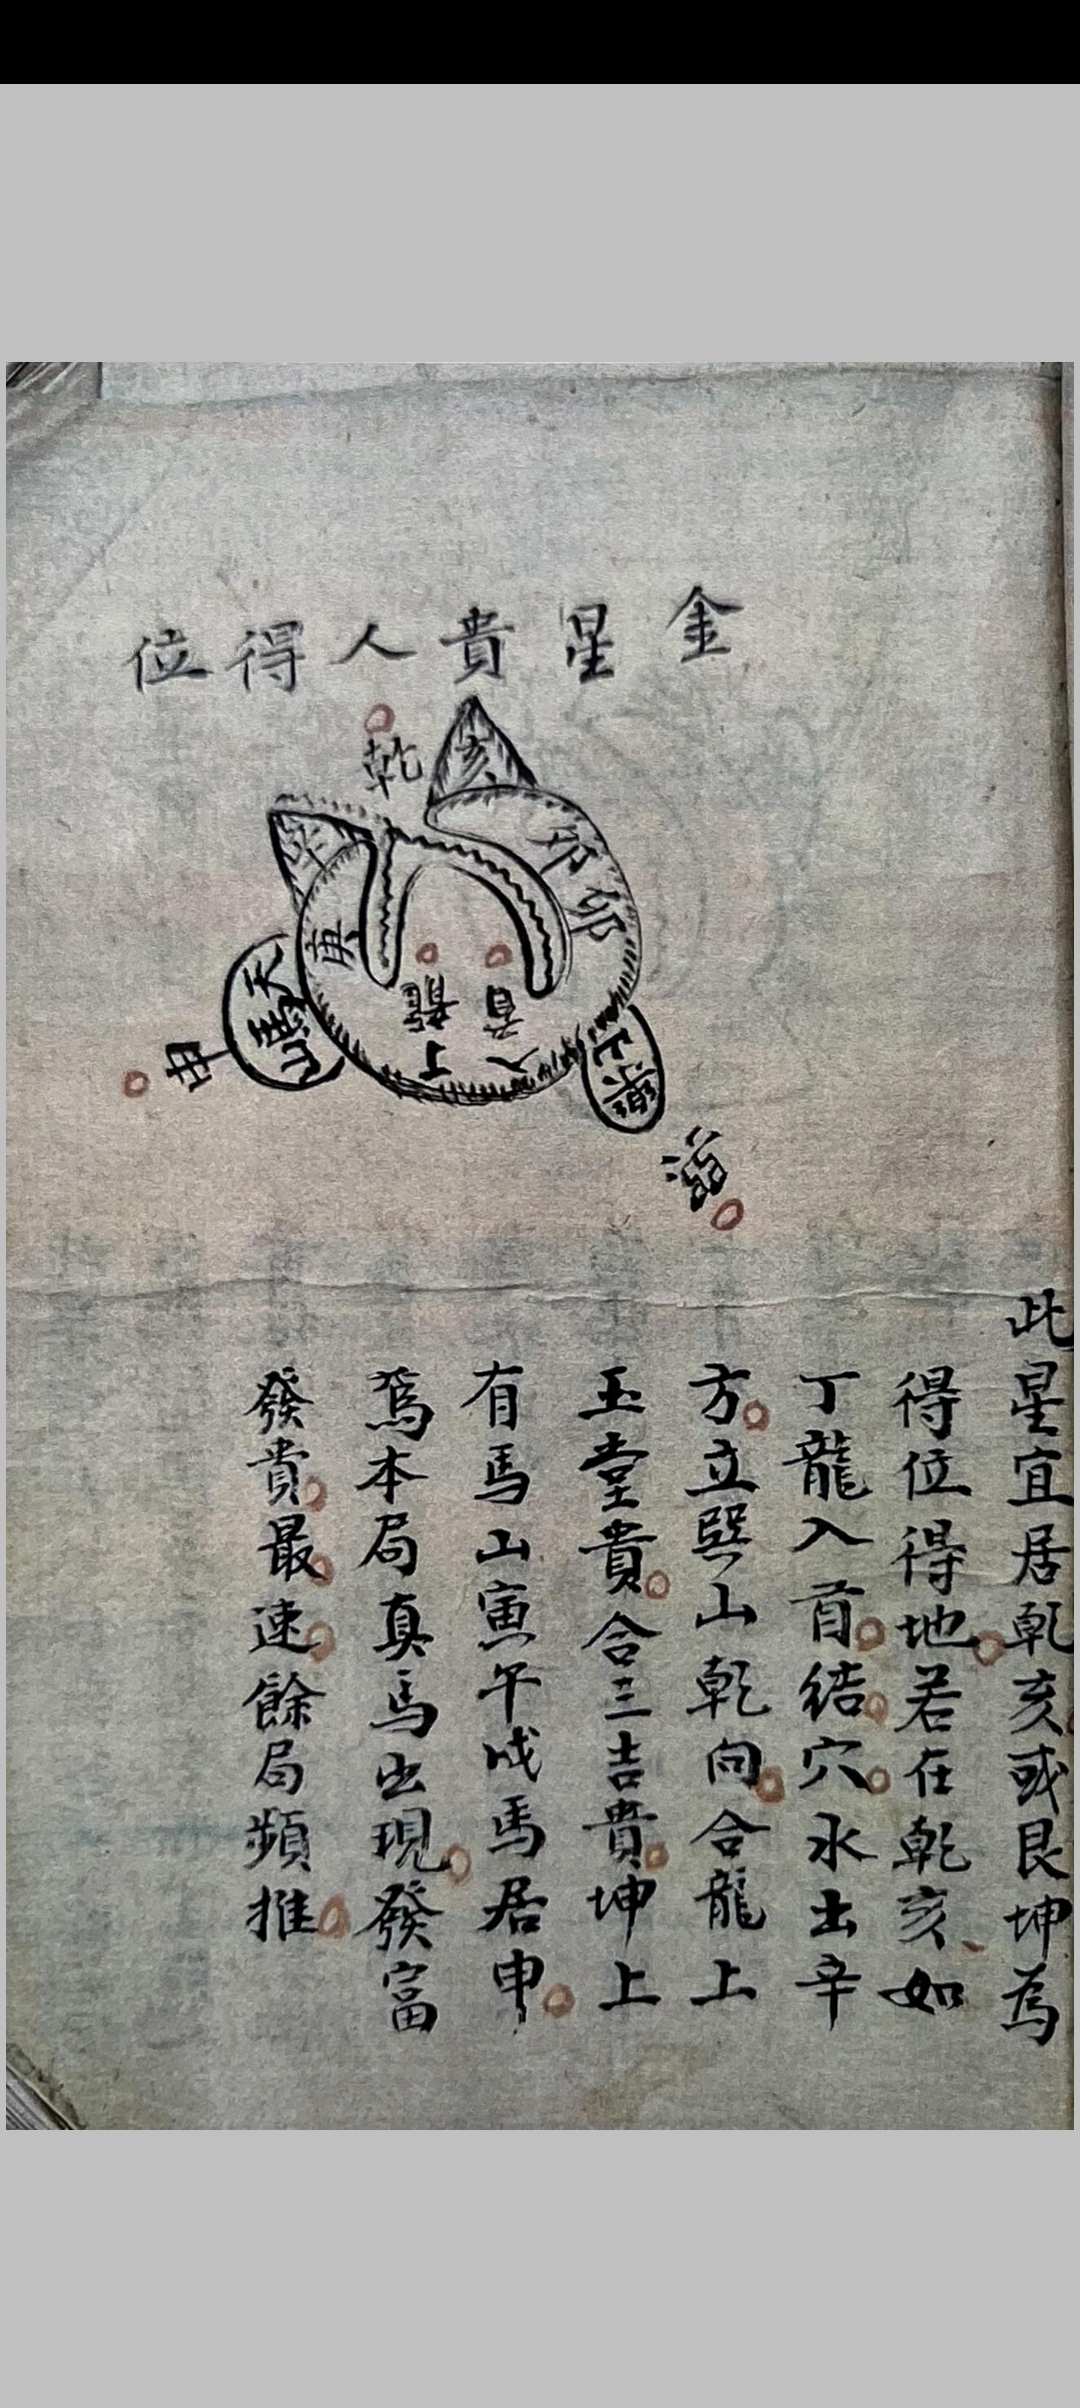 金星貴人得位
乾
亥
卯
庚
丁龍
入首
天馬山
申
樂山
此星宜居乾亥或艮坤為
得位得地若在乾亥如
丁龍入首結穴水出辛
方立巽山乾向合龍上
玉堂貴合三吉貴坤上
有馬山寅午戌馬居申
為本局真馬出現發富
發貴最速餘局類推